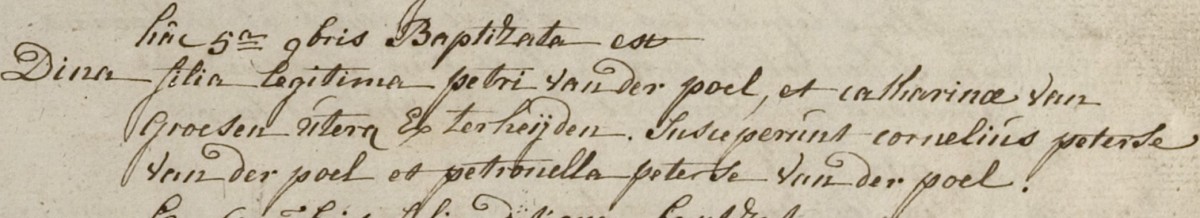 hâc 5ª 9bris Baptizata est
Dina filia legitima petri van der poel, et catharinæ van
Groesen uterq Ex terheijden. Susceperúnt corneliús peterse
van der poel et petronella peterse van der poel.